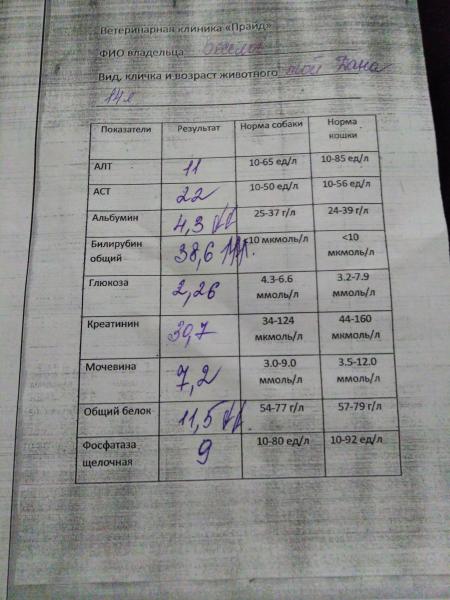 Ветеринарная клиника «Прайд»
ФИО владельца
Вид, кличка и возраст животного той Дана
14 л
Показатели Результат Норма собаки Норма кошки
АЛТ 11 10-65 ед/л 10-85 ед/л
АСТ 22 10-50 ед/л 10-56 ед/л
Альбумин 4,3 ↓↓ 25-37 г/л 24-39 г/л
Билирубин общий 38,6 ↑↑↑. <10 мкмоль/л <10 мкмоль/л
Глюкоза 2,26 4.3-6.6 ммоль/л 3.2-7.9 ммоль/л
Креатинин 39,7 34-124 мкмоль/л 44-160 мкмоль/л
Мочевина 7,2 3.0-9.0 ммоль/л 3.5-12.0 ммоль/л
Общий белок 11,5 ↓↓. 54-77 г/л 57-79 г/л
Фосфатаза щелочная 9 10-80 ед/л 10-92 ед/л